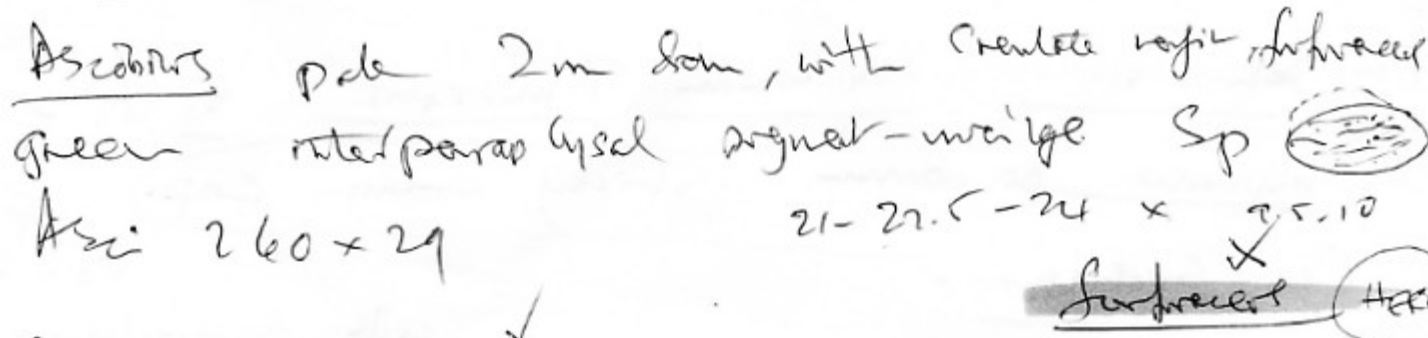 Ascobolus pale 2mm diam, with crenulate margin, furfuraceous
green interparaphysal pigment - mucilge Sp
Asci 260 × 29 21-22.5-24 × 9.5-10
furfuraceus HER